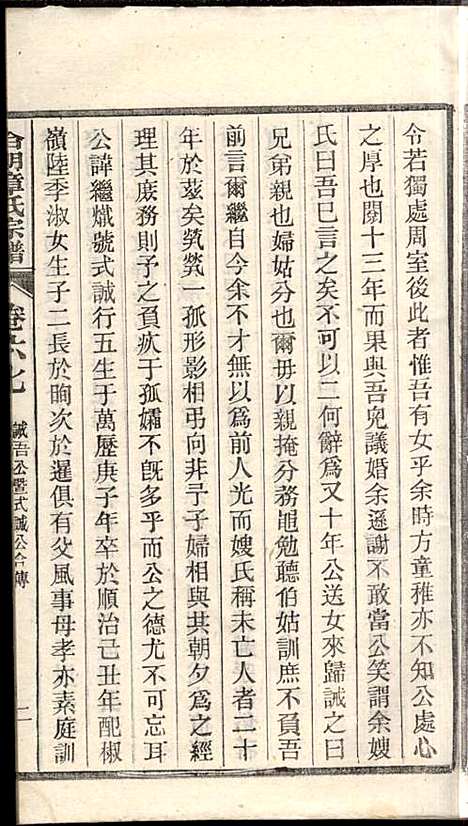 令若獨處周室後此者惟吾有女乎余時方童稚亦不知公處心
之厚也閱十三年而果與吾兒議婚余遜謝不敢當公笑謂余嫂
氏曰吾已言之矣不可以二何辭爲又十年公送女來歸誡之曰
兄弟親也婦姑分也爾毋以親掩分務黽勉聽伯姑訓庶不負吾
前言爾繼自今余不才無以爲前人光而嫂氏稱未亡人者二十
年於茲矣煢煢一孤形影相弔向非子子婦相與共朝夕爲之經
理其庶務則予之負疚于孤孀不旣多乎而公之德尤不可忘耳
公諱繼熾號式誠行五生于萬歷庚子年卒於順治己丑年配椒
嶺陸季淑女生子二長於昫次於暹俱有父風事母孝亦素庭訓
章氏宗譜
卷六七
誠吾公暨式誠公合傳
二